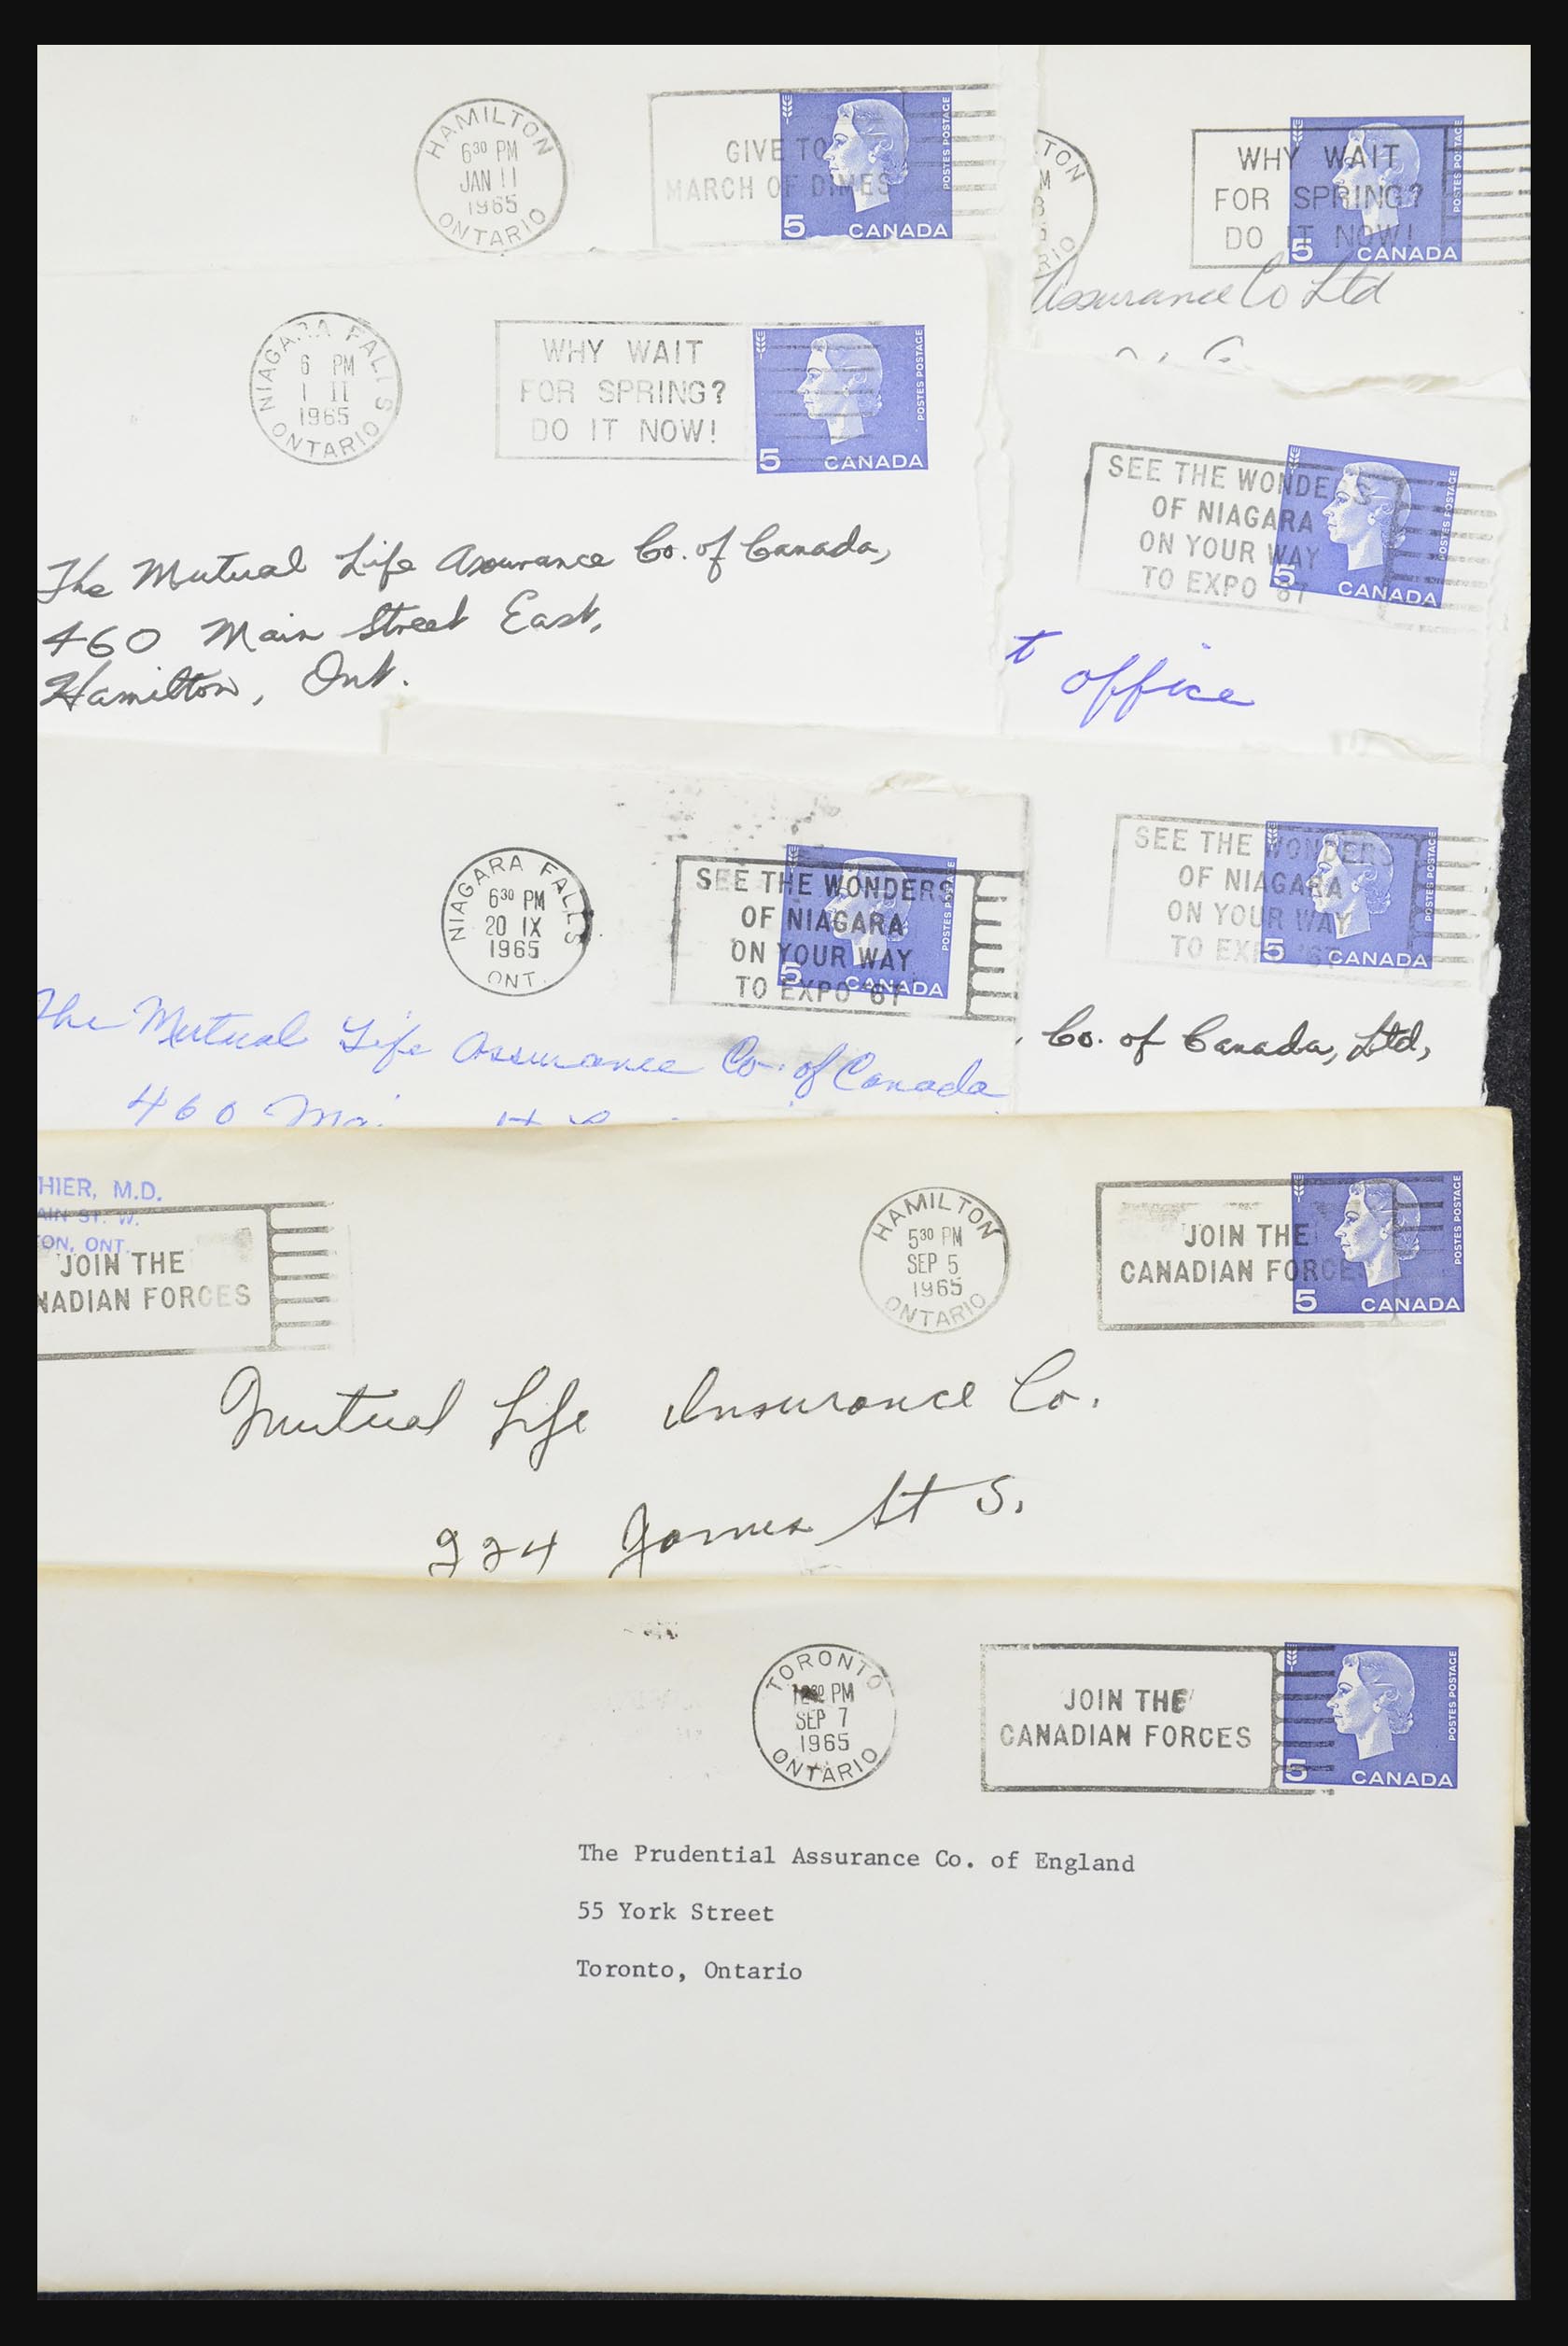 HAMILTON
6³⁰ PM
JAN 11
1965
ONTARIO
GIVE TO
MARCH OF DIMES
POSTES POSTAGE
5 CANADA
TON
M
RIO
WHY WAIT
FOR SPRING?
DO IT NOW!
POSTES POSTAGE
5 CANADA
Assurance Co Ltd
NIAGARA FALLS
6 PM
1 II
1965
ONTARIO
WHY WAIT
FOR SPRING?
DO IT NOW!
POSTES POSTAGE
5 CANADA
The Mutual Life Assurance Co. of Canada,
460 Main Street East,
Hamilton, Ont.
SEE THE WONDERS
OF NIAGARA
ON YOUR WAY
TO EXPO '67
POSTES POSTAGE
5 CANADA
t office
NIAGARA FALLS
6³⁰ PM
20 IX
1965
ONT.
SEE THE WONDERS
OF NIAGARA
ON YOUR WAY
TO EXPO '67
POSTES POSTAGE
5 CANADA
The Mutual Life Assurance Co. of Canada
460
SEE THE WONDERS
OF NIAGARA
ON YOUR WAY
TO EXPO '67
POSTES POSTAGE
5 CANADA
Co. of Canada, Ltd,
HIER, M.D.
AIN ST. W.
ON, ONT.
JOIN THE
NADIAN FORCES
HAMILTON
5³⁰ PM
SEP 5
1965
ONTARIO
JOIN THE
CANADIAN FORCES
POSTES POSTAGE
5 CANADA
Mutual Life Insurance Co.
224 James St S.
TORONTO
PM
SEP 7
1965
ONTARIO
JOIN THE
CANADIAN FORCES
POSTES POSTAGE
5 CANADA
The Prudential Assurance Co. of England
55 York Street
Toronto, Ontario